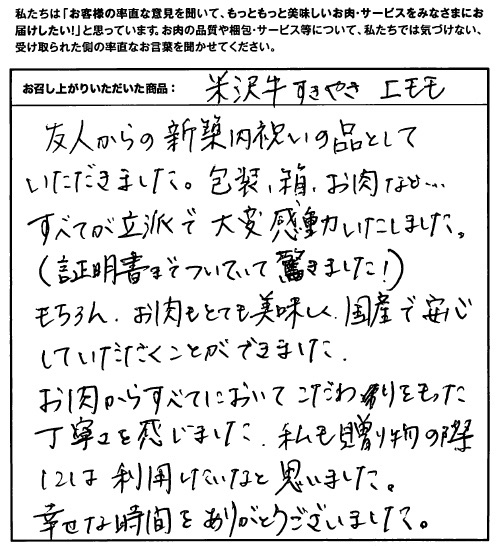 私たちは「お客様の率直な意見を聞いて、もっともっと美味しいお肉・サービスをみなさまにお
届けしたい!」と思っています。お肉の品質や梱包・サービス等について、私たちでは気づけない、
受け取られた側の率直なお言葉を聞かせてください。
お召し上がりいただいた商品： 米沢牛すきやき 上モモ
友人からの新築内祝いの品として
いただきました。包装、箱、お肉など…
すべてが立派で大変感動いたしました。
(証明書までついていて驚きました!)
もちろん、お肉もとても美味しく、国産で安心
していただくことができました。
お肉からすべてにおいてこだわりをもった
丁寧さを感じました。私も贈り物の際
には利用したいなと思いました。
幸せな時間をありがとうございました。